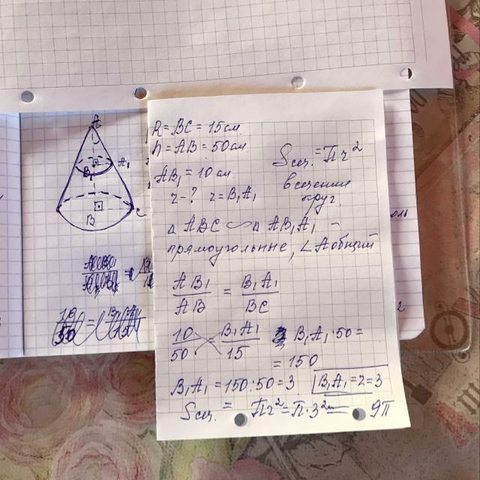 R = BC = 15см
h = AB = 50см
AB₁ = 10см
r - ? r = B₁A₁
Sсеч. = Πr²
в сечении
круг.
△ ABC ∽ △ AB₁A₁ -
прямоугольные, ∠A общий
AB₁/AB = B₁A₁/BC
10/50 = B₁A₁/15
B₁A₁ · 50 =
= 150
B₁A₁ = 150 : 50 = 3
B₁A₁ = r = 3
Sсеч. = Πr² = Π · 3² = 9Π
A
A₁
B₁
B
C